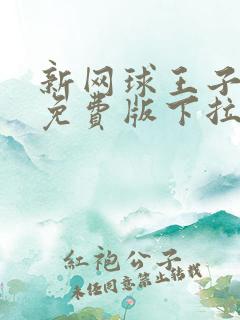 新网球王子
免費版下拉
紅袍公子
未经同意禁止转载